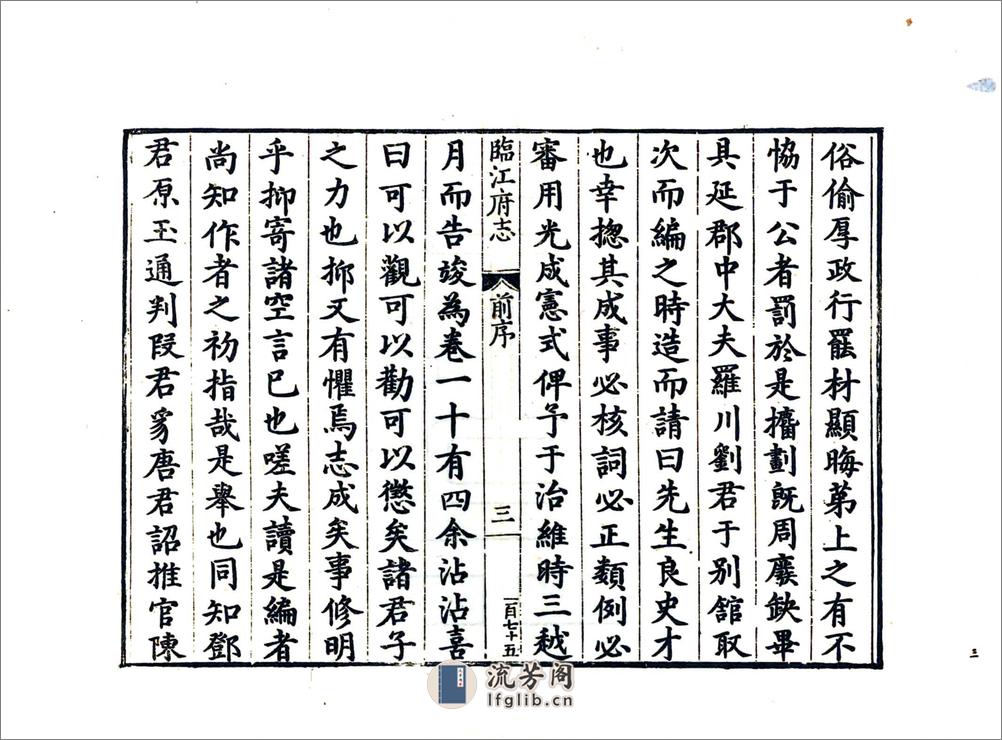 俗偷厚政行罷材顯晦苐上之有不
恊于公者罰於是擕劃旣周廢缺畢
具延郡中大夫羅川劉君于别舘取
次而編之時造而請曰先生良史才
也幸揔其成事必核詞必正類例必
審用光成憲式俾予于治維時三越
臨江府志
前序
三
一百七十五
月而告竣為卷一十有四余沾沾喜
曰可以觀可以勸可以懲矣諸君子
之力也抑又有懼焉志成矣事修明
乎抑寄諸空言已也嗟夫讀是編者
尚知作者之初指哉是舉也同知鄧
君原玉通判段君豸唐君詔推官陳
三
流芳阁
lfglib.cn